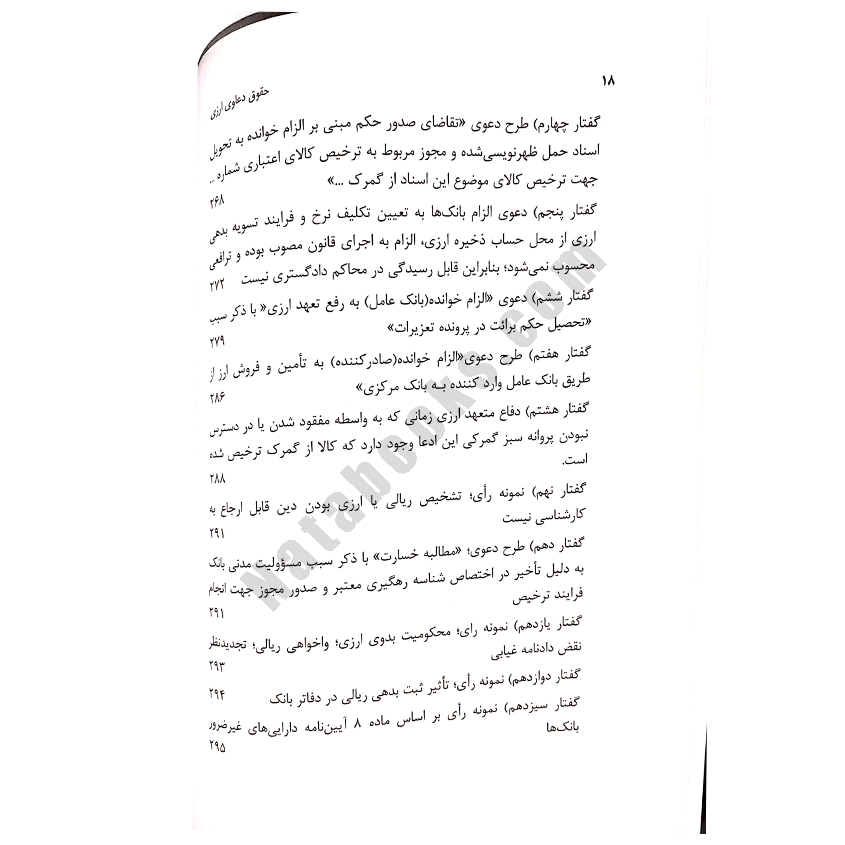 ۱۸
حقوق دعاوی ارزی
گفتار چهارم) طرح دعوی «تقاضای صدور حکم مبنی بر الزام خوانده به تحویل
اسناد حمل ظهرنویسی‌شده و مجوز مربوط به ترخیص کالای اعتباری شماره ...
جهت ترخیص کالای موضوع این اسناد از گمرک ...»
۲۶۸
گفتار پنجم) دعوی الزام بانک‌ها به تعیین تکلیف نرخ و فرایند تسویه بدهی
ارزی از محل حساب ذخیره ارزی، الزام به اجرای قانون مصوب بوده و ترافعی
محسوب نمی‌شود؛ بنابراین قابل رسیدگی در محاکم دادگستری نیست ۲۷۲
گفتار ششم) دعوی «الزام خوانده(بانک عامل) به رفع تعهد ارزی« با ذکر سبب
«تحصیل حکم برائت در پرونده تعزیرات»
۲۷۹
گفتار هفتم) طرح دعوی«الزام خوانده(صادرکننده) به تأمین و فروش ارز از
طریق بانک عامل وارد کننده بـه بانک مرکزی»
۲۸۶
گفتار هشتم) دفاع متعهد ارزی زمانی که به واسطه مفقود شدن یا در دسترس
نبودن پروانه سبز گمرکی این ادعا وجود دارد که کالا از گمرک ترخیص شده
است.
۲۸۸
گفتار نهم) نمونه رأی؛ تشخیص ریالی یا ارزی بودن دین قابل ارجاع به
کارشناسی نیست
۲۹۱
گفتار دهم) طرح دعوی؛ «مطالبه خسارت» با ذکر سبب مسؤولیت مدنی بانک
به دلیل تأخیر در اختصاص شناسه رهگیری معتبر و صدور مجوز جهت انجام
فرایند ترخیص
۲۹۱
گفتار یازدهم) نمونه رای؛ محکومیت بدوی ارزی؛ واخواهی ریالی؛ تجدیدنظر
نقض دادنامه غیابی
۲۹۳
گفتار دوازدهم) نمونه رأی؛ تأثیر ثبت بدهی ریالی در دفاتر بانک
۲۹۴
گفتار سیزدهم) نمونه رأی بر اساس ماده ۸ آیین‌نامه دارایی‌های غیرضرور
بانک‌ها
۲۹۵
Natabooks.com